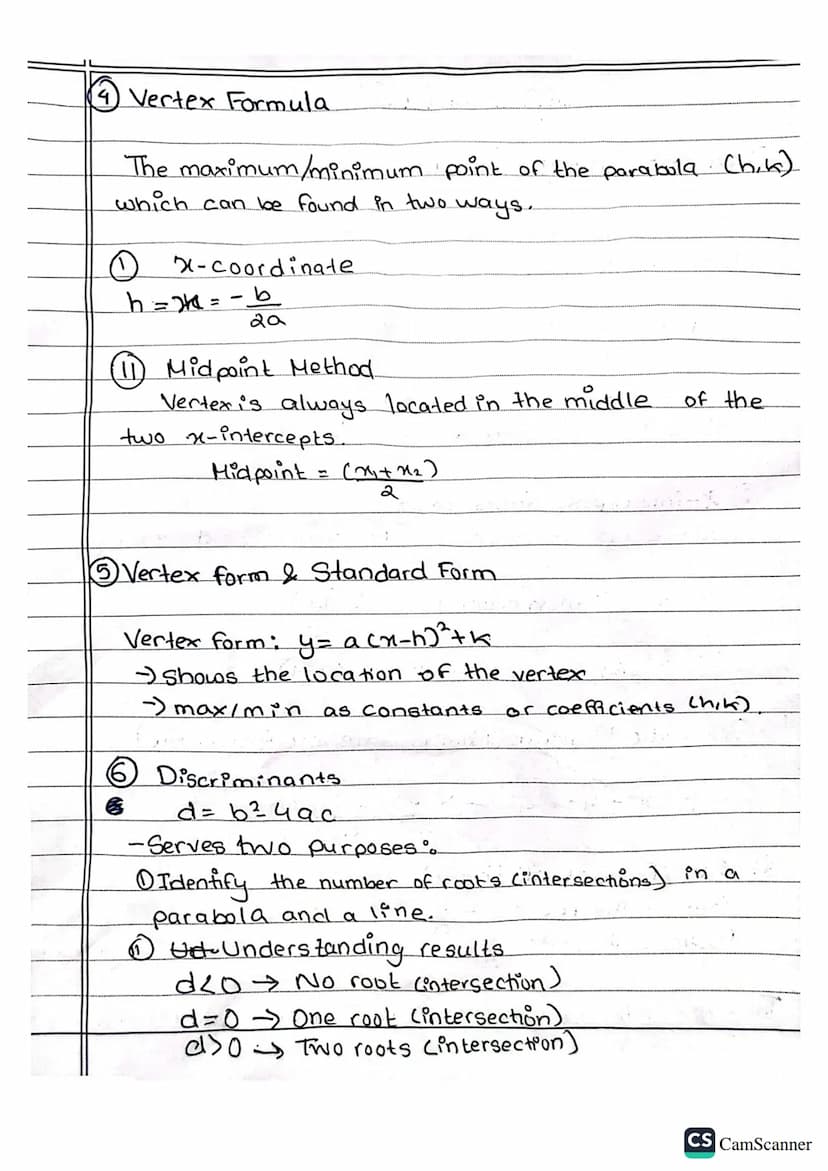 ④ Vertex Formula
The maximum/minimum point of the parabola (h,k)
which can be found in two ways.
① x-coordinate
h = x = - b/2a
⑪ Midpoint Method
Vertex is always located in the middle of the
two x-intercepts.
Midpoint = (x₁+x₂)/2
⑤ Vertex form & Standard Form
Vertex form: y= a(x-h)²+k
→ Shows the location of the vertex
→ max/min as constants or coefficients (h,k).
⑥ Discriminants
d= b²-4ac
-Serves two purposes:
① Identify the number of roots (intersections) in a
parabola and a line.
⑪ Understanding results
d<0 → No root (intersection)
d=0 → One root (intersection)
d>0 → Two roots (intersection)
CS CamScanner